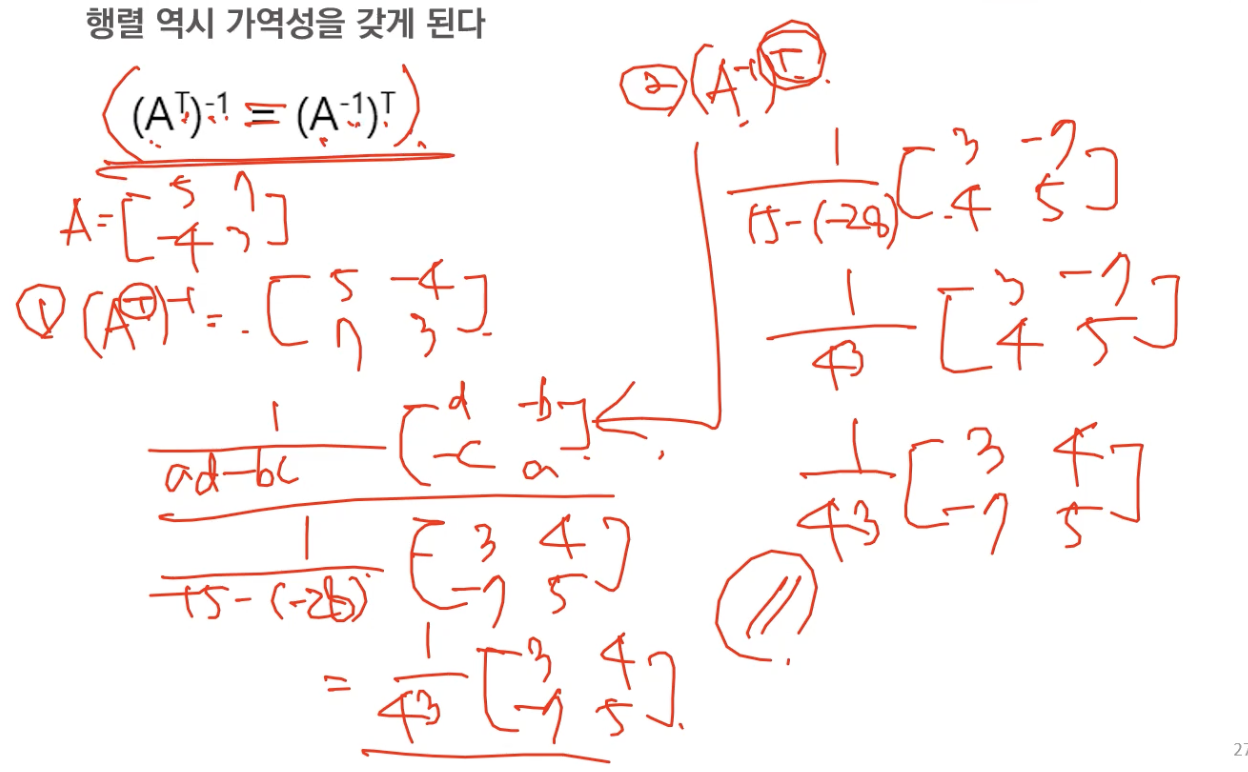 행렬 역시 가역성을 갖게 된다
(Aᵀ)⁻¹ = (A⁻¹)ᵀ
A = [ 5 7
-4 3 ]
① (Aᵀ)⁻¹ = [ 5 -4
7 3 ]
1/(ad-bc) [ d -b
-c a ]
1/(15-(-28)) [ 3 4
-7 5 ]
= 1/43 [ 3 4
-7 5 ]
② (A⁻¹)ᵀ
1/(15-(-28)) [ 3 -7
4 5 ]
1/43 [ 3 -7
4 5 ]
1/43 [ 3 4
-7 5 ]
27